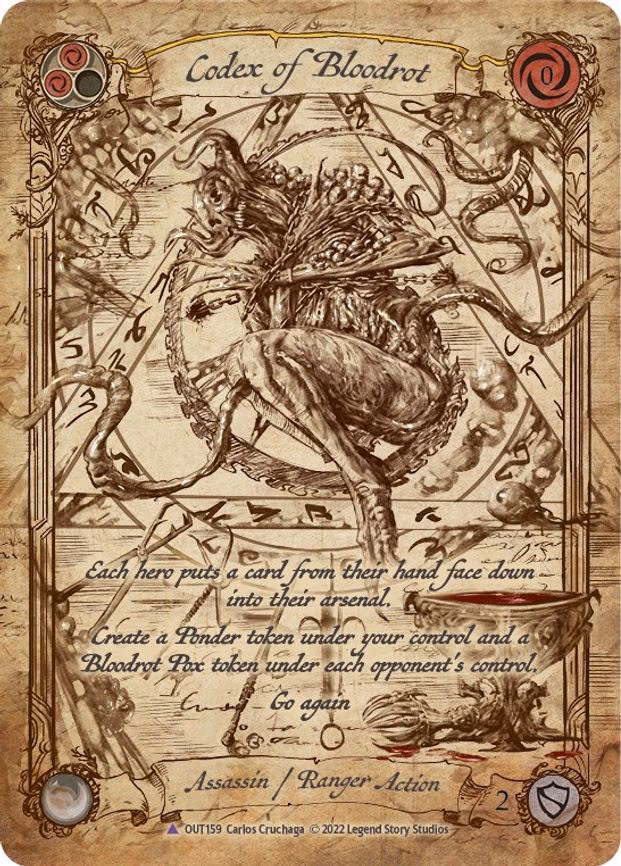 Codex of Bloodrot
0
Each hero puts a card from their hand face down
into their arsenal.
Create a Ponder token under your control and a
Bloodrot Pox token under each opponent's control.
Go again
Assassin / Ranger Action
2
OUT159 Carlos Cruchaga © 2022 Legend Story Studios